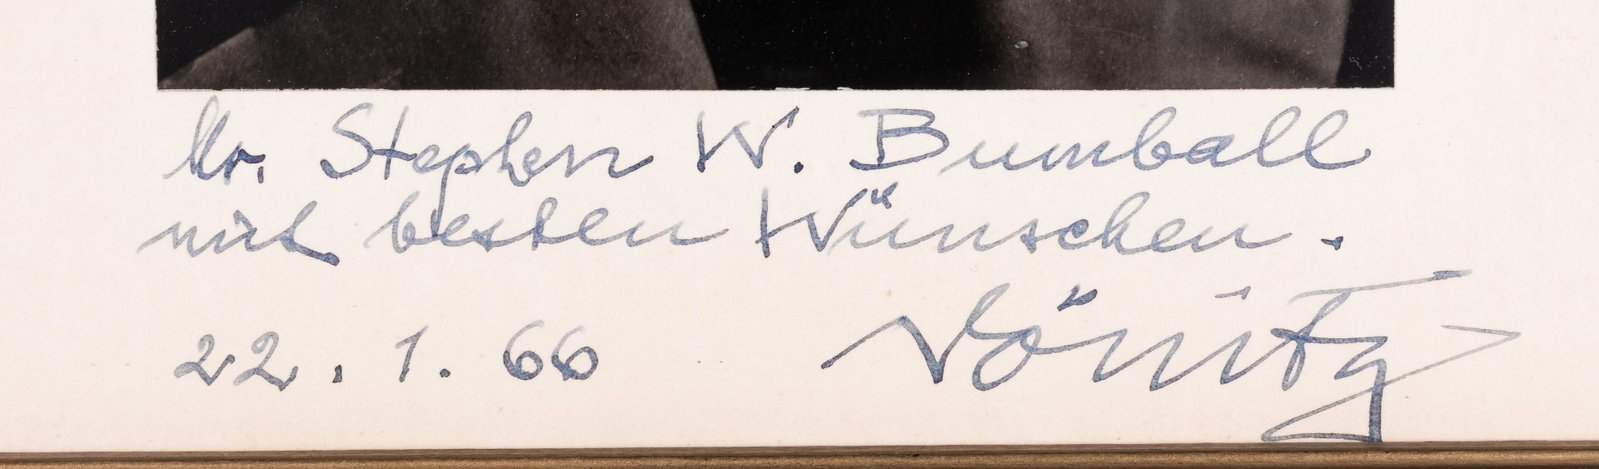 Mr. Stephen W. Bumball
mit besten Wünschen.
22.1.66
Dönitz